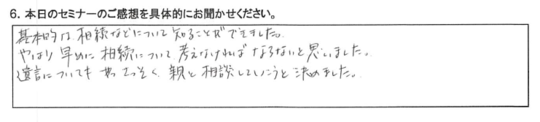 6. 本日のセミナーのご感想を具体的にお聞かせください。
基本的な相続などについて知ることができました。
やはり早めに相続について考えなければならないと思いました。
遺言についてもさっそく、親と相談していこうと決めました。